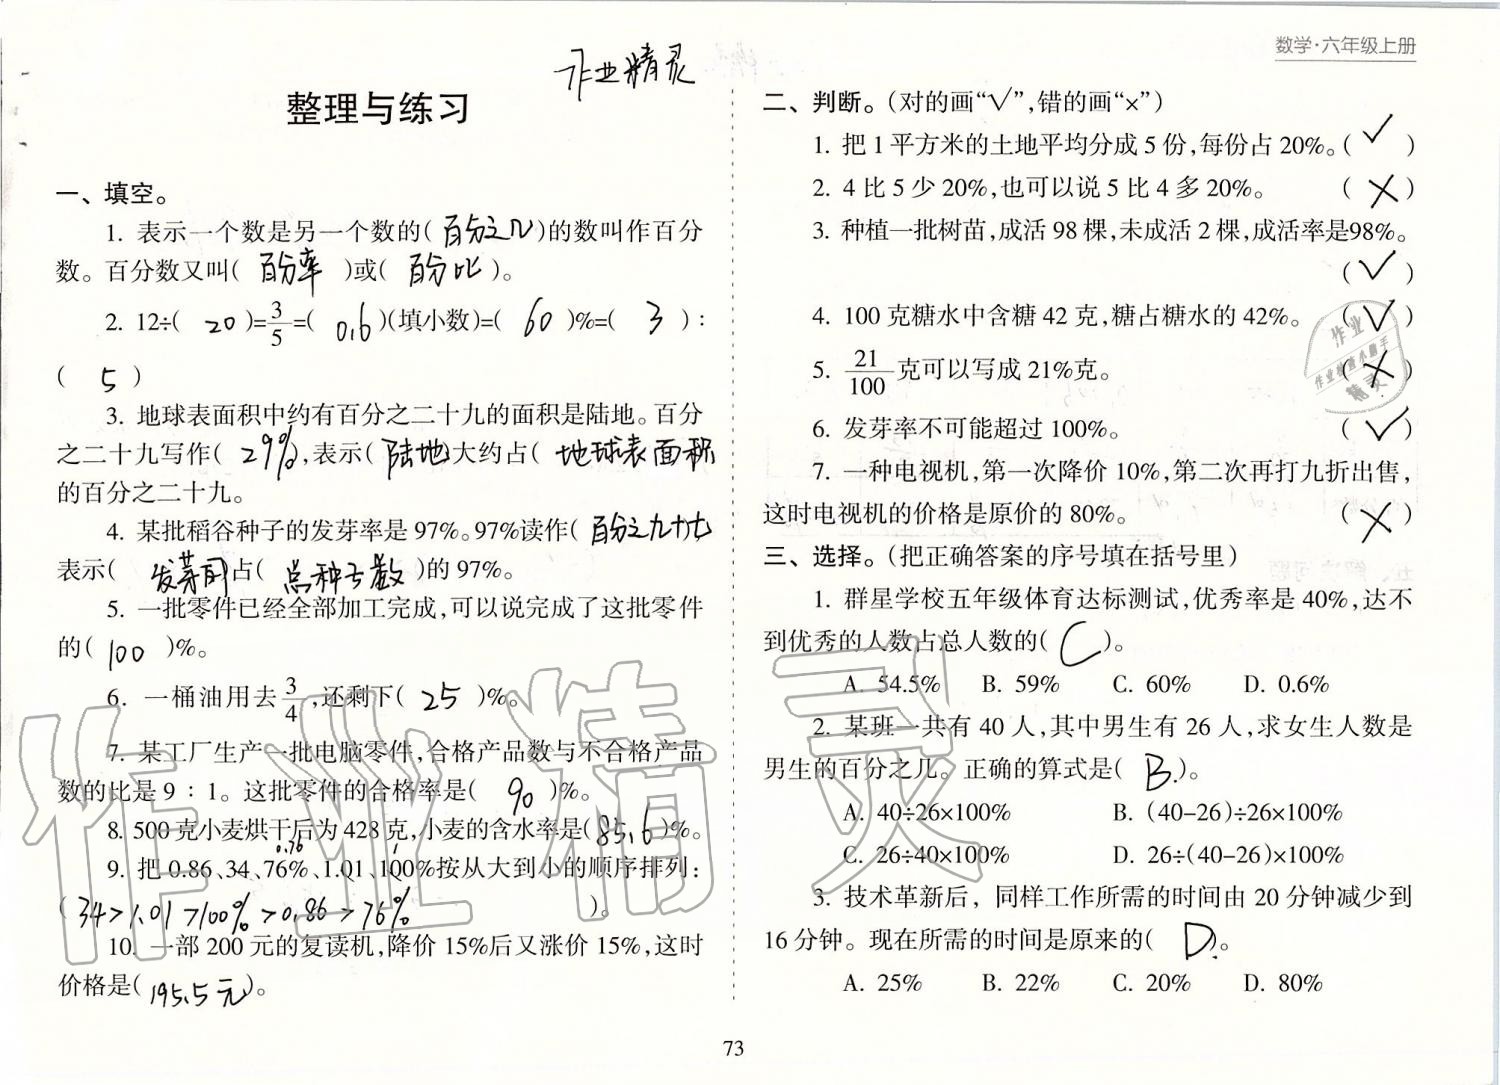 数学·六年级上册
作业精灵
整理与练习
一、填空。
1. 表示一个数是另一个数的( 百分之几 )的数叫作百分
数。百分数又叫( 百分率 )或( 百分比 )。
2. 12÷( 20 )=3/5=( 0.6 )(填小数)=( 60 )%=( 3 )：
( 5 )
3. 地球表面积中约有百分之二十九的面积是陆地。百分
之二十九写作( 29% ),表示( 陆地 大约占( 地球表面积
的百分之二十九。
4. 某批稻谷种子的发芽率是97%。97%读作( 百分之九十七
表示( 发芽的 占( 总种子数 )的97%。
5. 一批零件已经全部加工完成,可以说完成了这批零件
的( 100 )%。
6. 一桶油用去3/4,还剩下( 25 )%。
7. 某工厂生产一批电脑零件,合格产品数与不合格产品
数的比是9：1。这批零件的合格率是( 90 )%。
8. 500克小麦烘干后为428克,小麦的含水率是( 85.6 )%。
0.76 1
9. 把0.86、34、76%、1.01、100%按从大到小的顺序排列：
( 34>1.01>100%>0.86>76% )。
10. 一部200元的复读机,降价15%后又涨价15%,这时
价格是( 195.5元 )。
二、判断。(对的画“√”,错的画“×”)
1. 把1平方米的土地平均分成5份,每份占20%。( √ )
2. 4比5少20%,也可以说5比4多20%。 ( × )
3. 种植一批树苗,成活98棵,未成活2棵,成活率是98%。
( √ )
4. 100克糖水中含糖42克,糖占糖水的42%。 ( √ )
5. 21/100克可以写成21%克。 ( × )
6. 发芽率不可能超过100%。 ( √ )
7. 一种电视机,第一次降价10%,第二次再打九折出售,
这时电视机的价格是原价的80%。 ( × )
三、选择。(把正确答案的序号填在括号里)
1. 群星学校五年级体育达标测试,优秀率是40%,达不
到优秀的人数占总人数的( C )。
A. 54.5% B. 59% C. 60% D. 0.6%
2. 某班一共有40人,其中男生有26人,求女生人数是
男生的百分之几。正确的算式是( B )。
A. 40÷26×100% B. (40-26)÷26×100%
C. 26÷40×100% D. 26÷(40-26)×100%
3. 技术革新后, 同样工作所需的时间由20分钟减少到
16分钟。现在所需的时间是原来的( D )。
A. 25% B. 22% C. 20% D. 80%
73
作业精灵
作业
精灵